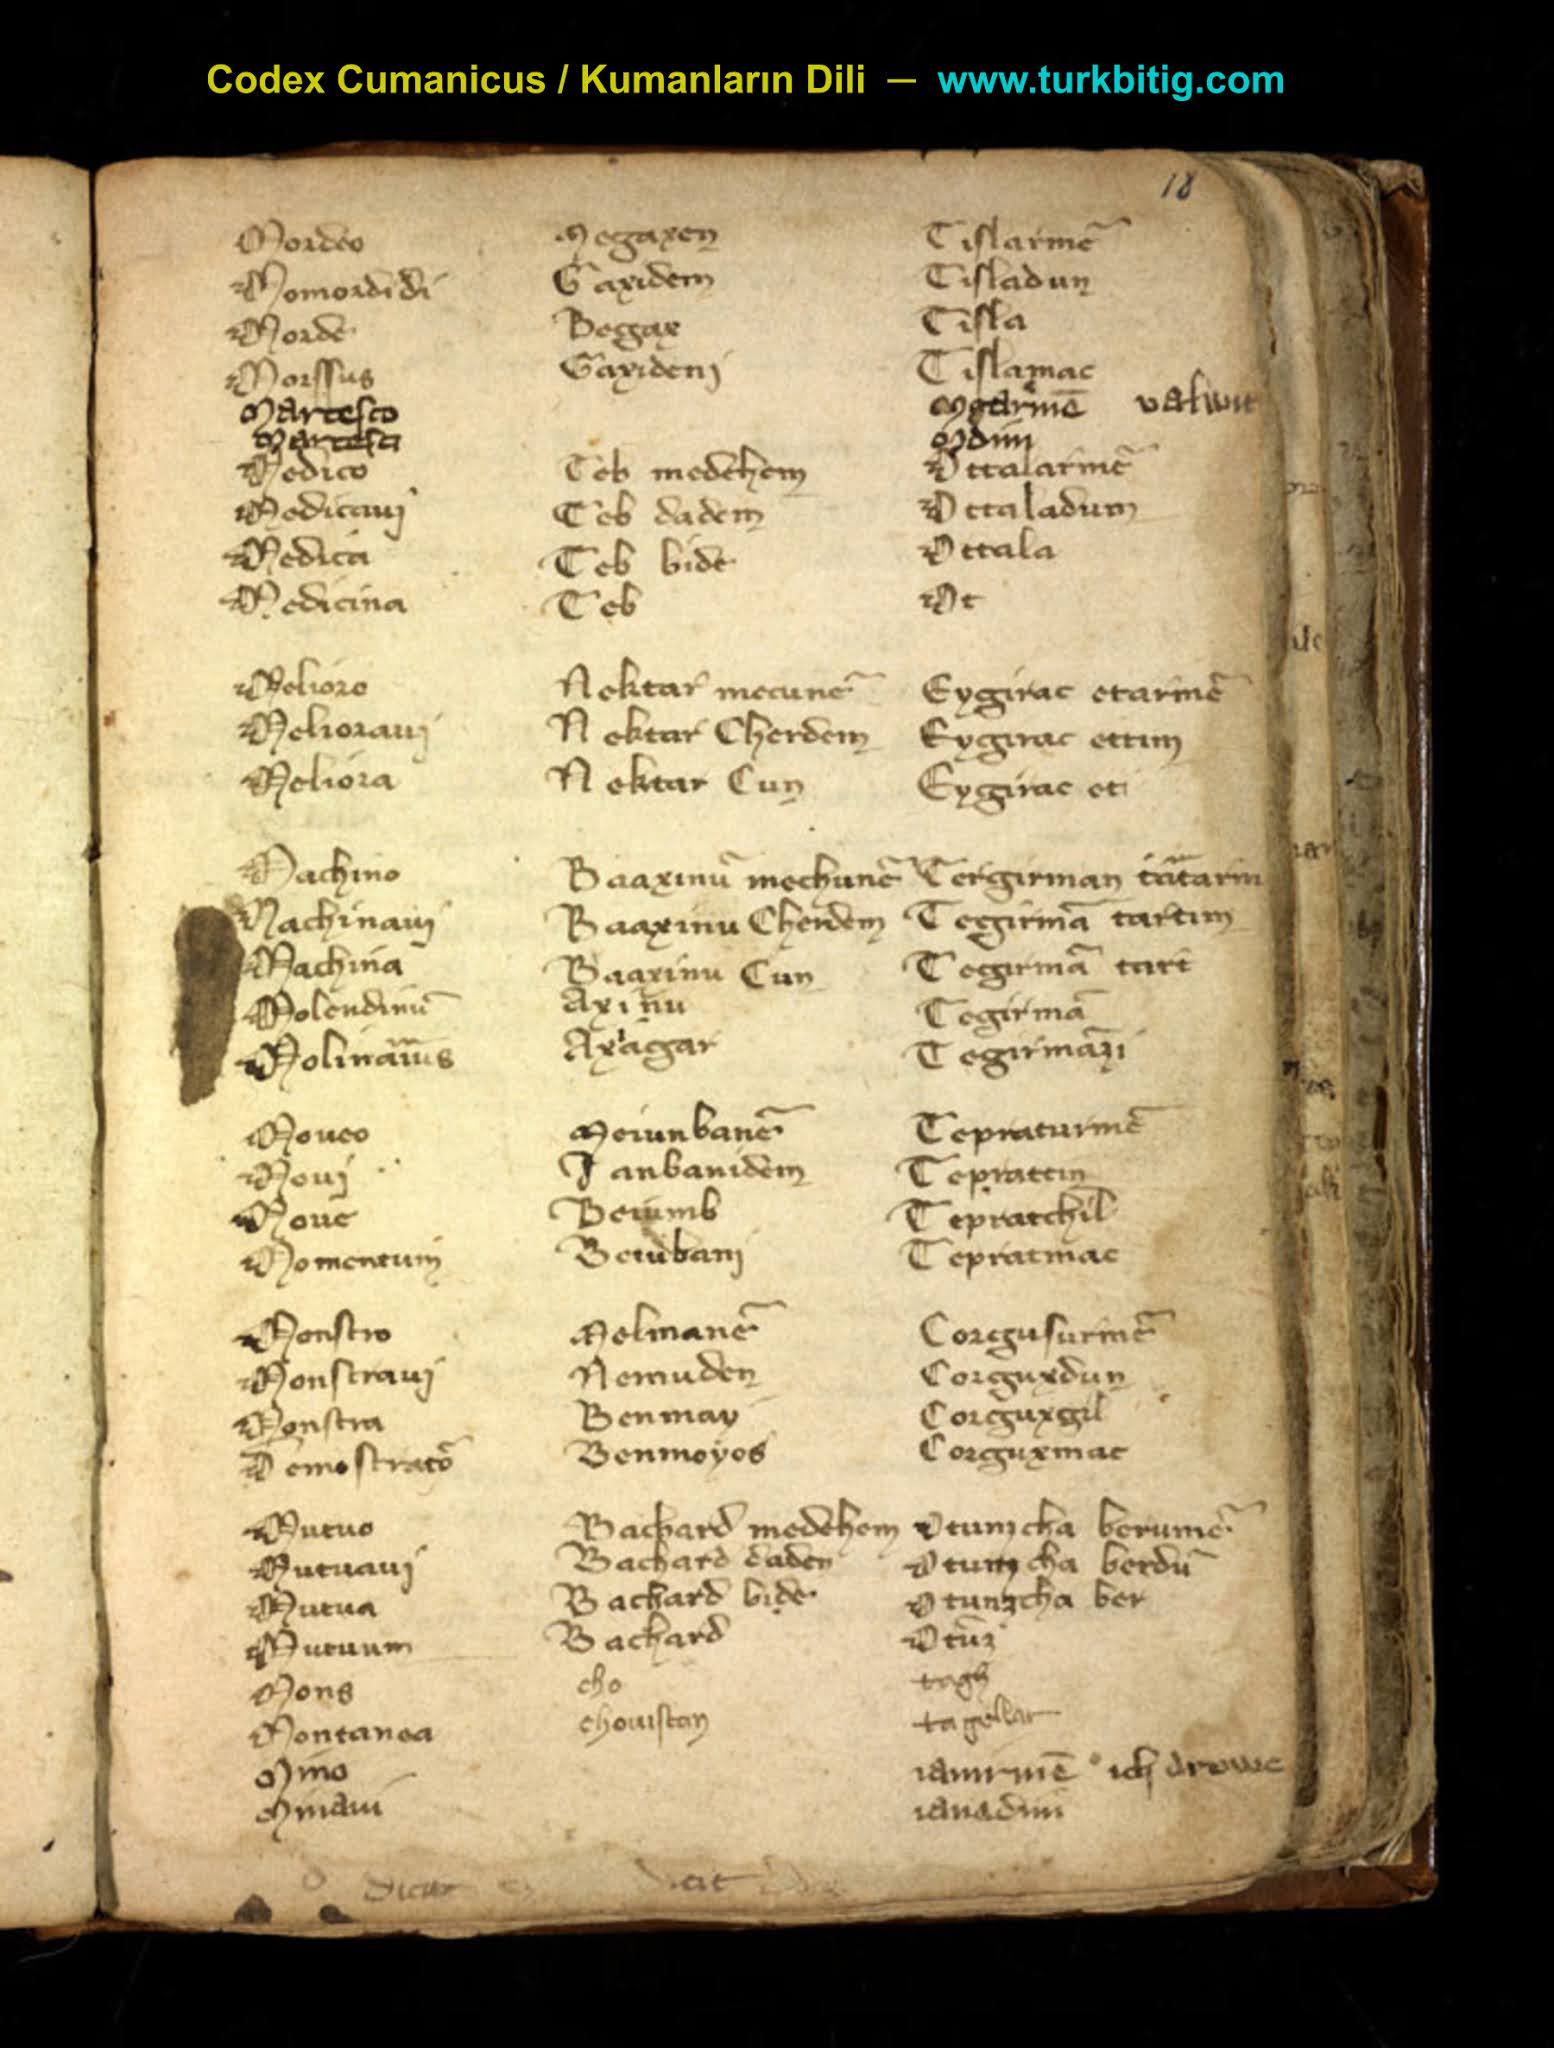 Codex Cumanicus / Kumanların Dili — www.turkbitig.com
18
Mordeo Megaxen Tislarmē
Momordidi Gaxidem Tisladun
Morde Begax Tisla
Morssus Gaxideni Tislamac
Martesco
Medico Teb medehem Ottalarmē
Medicaui Teb dadem Ottaladum
Medica Teb bide Ottala
Medicina Teb Ot
Melioro Nektar mecunē Eygirac etarmē
Melioraui Nektar Cherdem Eygirac ettim
Meliora Nektar Cun Eygirac et
Machino Baaxinū mechunē Tergirman
Machinaui Baaxinu Cherdem Tegirmā tartim
Machina Baaxinu Cun Tegirmā tart
Molendinū Axinu Tegirmā
Axagar Tegirmāzi
Moueo Meiunbanē Tepraturmē
Moui Ianbanidem Teprattin
Moue Beiumb Tepratchil
Momentum Beiubani Tepratmac
Monstro Melmanē Corgusurmē
Monstraui Nemuden Corguxdun
Monstra Benmay Corguxgil
Demostratō Benmoyos Corguxmac
Mutuo Bachard medehem Otunzcha berumē
Mutuaui Bachard daden Otunzcha berdū
Mutua Bachard bide Otunzcha ber
Mutuum Bachard Otūz
Mons cho tagh
Montanea chouistan
Mino ianirmē ich drowe
Minaui ianadim